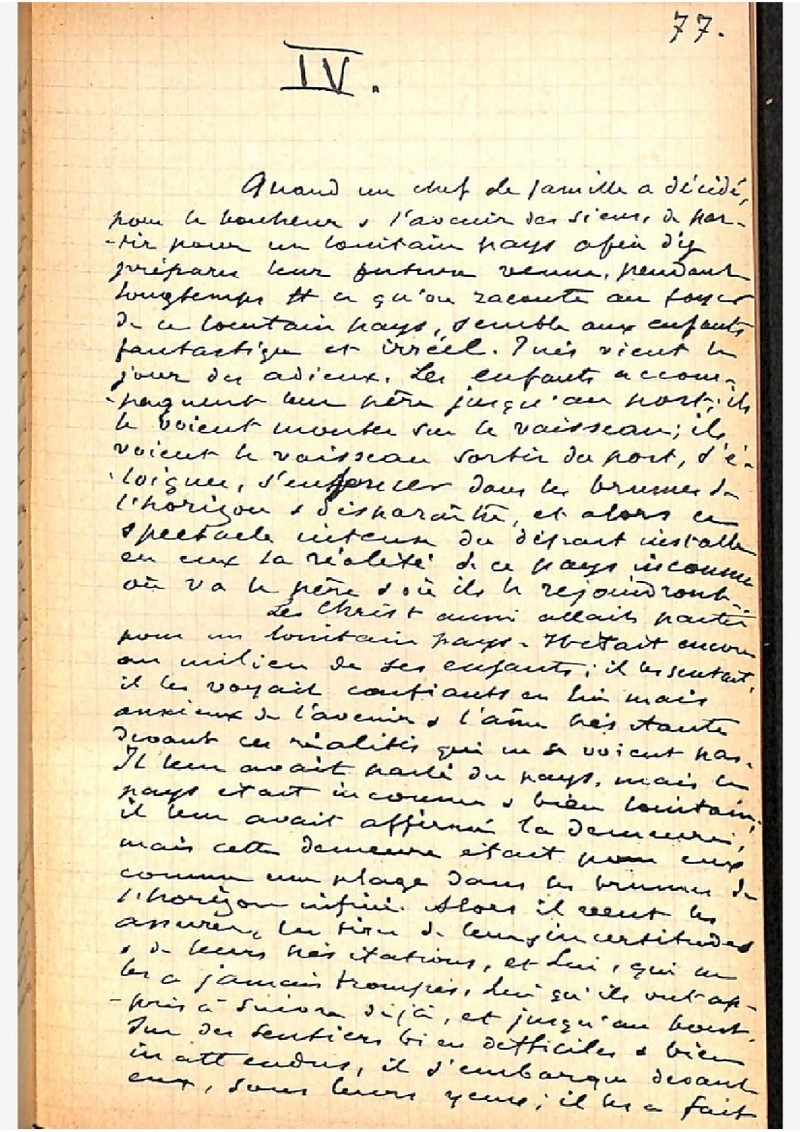 77.
IV.
Quand un chef de famille a décidé,
pour le bonheur & l'avenir des siens, de par-
-tir pour un lointain pays afin d'y
préparer leur future venue, pendant
longtemps ce qu'on raconte au foyer
de ce lointain pays, semble aux enfants
fantastique et irréel. Puis vient le
jour des adieux. Les enfants accom-
-pagnent leur père jusqu'au port; ils
le voient monter sur le vaisseau; ils
voient le vaisseau sortir du port, s'é-
-loigner, s'enfoncer dans les brumes de
l'horizon & disparaître, et alors ce
spectacle intense du départ installe
en eux la réalité de ce pays inconnu
où va le père & où ils le rejoindront.
Le Christ aussi allait partir
pour un lointain pays. Il était encore
au milieu de ses enfants; il les sentait,
il les voyait confiants en lui mais
anxieux de l'avenir & l'âme hésitante
devant ces réalités qui ne se voient pas.
Il leur avait parlé du pays, mais ce
pays était inconnu & bien lointain;
il leur avait affirmé la demeure,
mais cette demeure était pour eux
comme une plage dans les brumes de
l'horizon infini. Alors il veut les
assurer, les tirer de leurs incertitudes
& de leurs hésitations, et Lui, qui ne
les a jamais trompés, Lui qu'ils ont ap-
-pris à suivre déjà, et jusqu'au bout,
sur des sentiers bien difficiles & bien
inattendus, il s'embarque devant
eux, sous leurs yeux; il les a fait